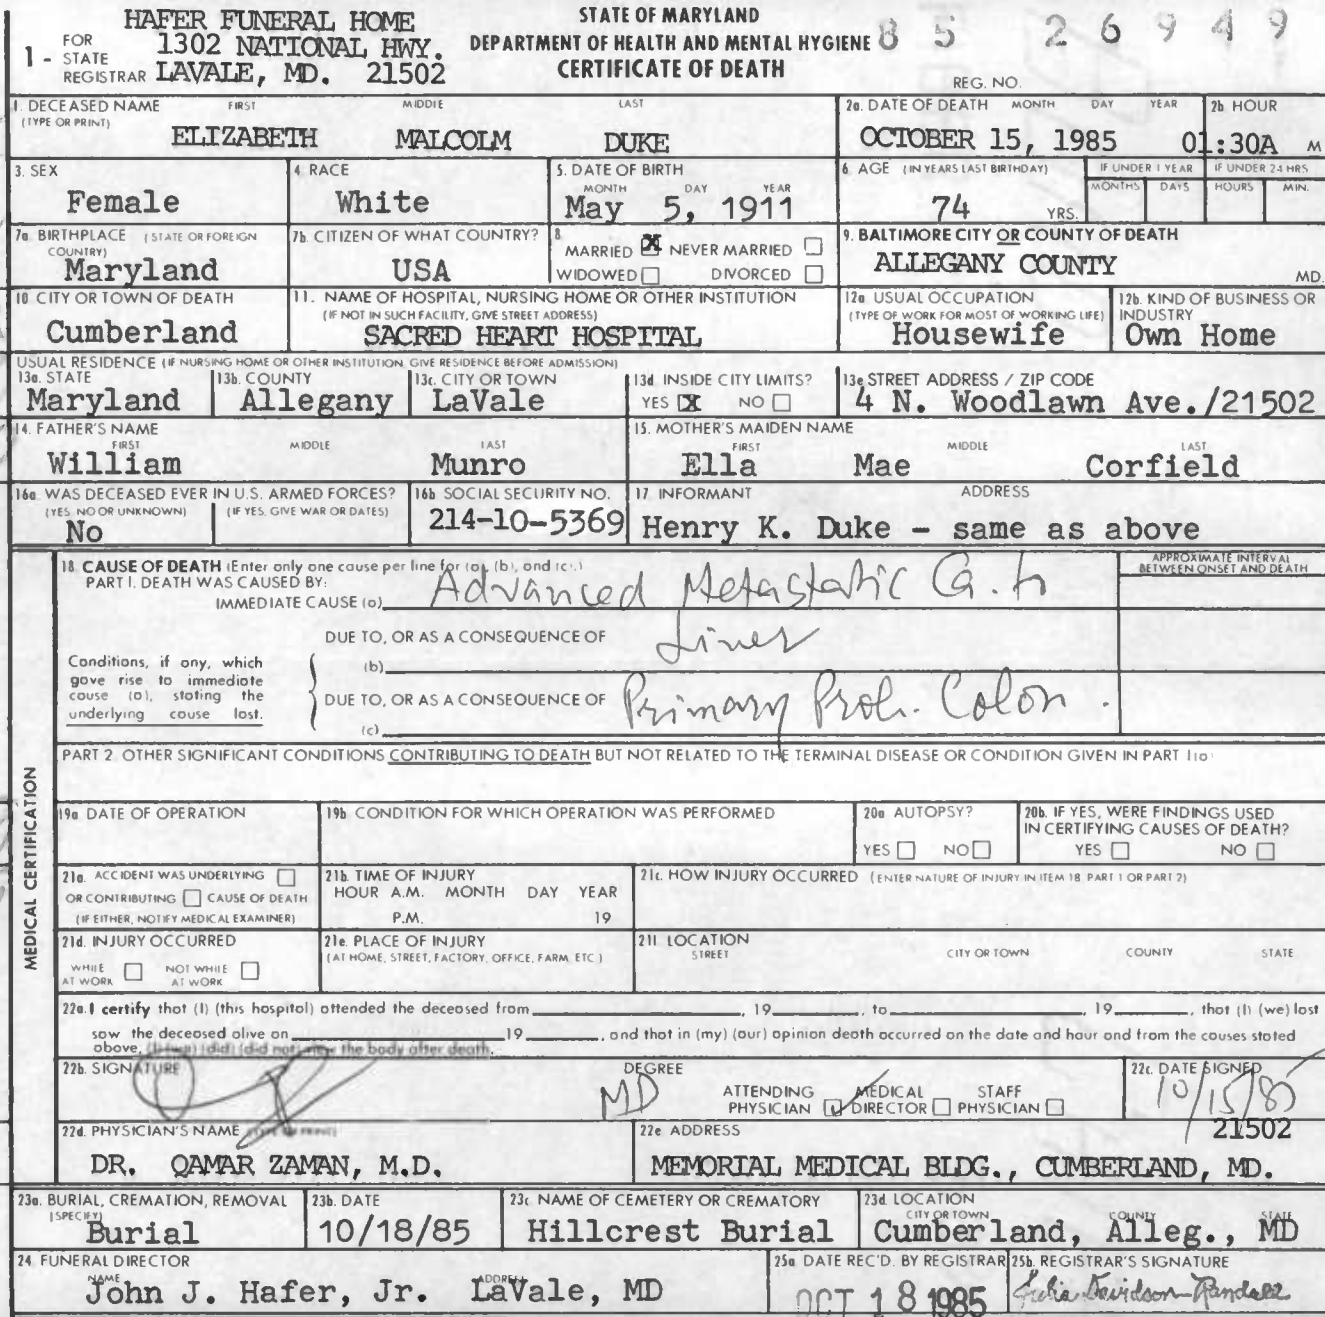 HAFER FUNERAL HOME
1302 NATIONAL HWY.
LAVALE, MD. 21502
1 - FOR STATE REGISTRAR
STATE OF MARYLAND
DEPARTMENT OF HEALTH AND MENTAL HYGIENE
CERTIFICATE OF DEATH
85 26949
REG. NO.
1. DECEASED NAME FIRST MIDDLE LAST
(TYPE OR PRINT)
ELIZABETH MALCOLM DUKE
2a. DATE OF DEATH MONTH DAY YEAR
OCTOBER 15, 1985
2b. HOUR
01:30A M
3. SEX
Female
4. RACE
White
5. DATE OF BIRTH
MONTH DAY YEAR
May 5, 1911
6. AGE (IN YEARS LAST BIRTHDAY)
74 YRS.
IF UNDER 1 YEAR
MONTHS DAYS
IF UNDER 24 HRS
HOURS MIN.
7a. BIRTHPLACE (STATE OR FOREIGN COUNTRY)
Maryland
7b. CITIZEN OF WHAT COUNTRY?
USA
8.
MARRIED X NEVER MARRIED
WIDOWED DIVORCED
9. BALTIMORE CITY OR COUNTY OF DEATH
ALLEGANY COUNTY MD.
10 CITY OR TOWN OF DEATH
Cumberland
11. NAME OF HOSPITAL, NURSING HOME OR OTHER INSTITUTION
(IF NOT IN SUCH FACILITY, GIVE STREET ADDRESS)
SACRED HEART HOSPITAL
12a. USUAL OCCUPATION
(TYPE OF WORK FOR MOST OF WORKING LIFE)
Housewife
12b. KIND OF BUSINESS OR INDUSTRY
Own Home
USUAL RESIDENCE (IF NURSING HOME OR OTHER INSTITUTION, GIVE RESIDENCE BEFORE ADMISSION)
13a. STATE
Maryland
13b. COUNTY
Allegany
13c. CITY OR TOWN
LaVale
13d INSIDE CITY LIMITS?
YES X NO
13e STREET ADDRESS / ZIP CODE
4 N. Woodlawn Ave./21502
14. FATHER'S NAME
FIRST MIDDLE LAST
William Munro
15. MOTHER'S MAIDEN NAME
FIRST MIDDLE LAST
Ella Mae Corfield
16a. WAS DECEASED EVER IN U.S. ARMED FORCES?
(YES, NO OR UNKNOWN) (IF YES, GIVE WAR OR DATES)
No
16b SOCIAL SECURITY NO.
214-10-5369
17 INFORMANT ADDRESS
Henry K. Duke - same as above
MEDICAL CERTIFICATION
18. CAUSE OF DEATH (Enter only one cause per line for (a), (b), and (c).)
PART I. DEATH WAS CAUSED BY:
IMMEDIATE CAUSE (a) Advanced Metastatic Ca. to
APPROXIMATE INTERVAL BETWEEN ONSET AND DEATH
DUE TO, OR AS A CONSEQUENCE OF
(b) Liver
Conditions, if any, which gave rise to immediate cause (a), stating the underlying cause last.
DUE TO, OR AS A CONSEQUENCE OF
(c) Primary Prob. Colon.
PART 2. OTHER SIGNIFICANT CONDITIONS CONTRIBUTING TO DEATH BUT NOT RELATED TO THE TERMINAL DISEASE OR CONDITION GIVEN IN PART 1(a)
19a DATE OF OPERATION
19b CONDITION FOR WHICH OPERATION WAS PERFORMED
20a AUTOPSY?
YES NO
20b. IF YES, WERE FINDINGS USED IN CERTIFYING CAUSES OF DEATH?
YES NO
21a. ACCIDENT WAS UNDERLYING
OR CONTRIBUTING CAUSE OF DEATH
(IF EITHER, NOTIFY MEDICAL EXAMINER)
21b. TIME OF INJURY
HOUR A.M. MONTH DAY YEAR
P.M. 19
21c. HOW INJURY OCCURRED (ENTER NATURE OF INJURY IN ITEM 18, PART 1 OR PART 2)
21d. INJURY OCCURRED
WHILE AT WORK NOT WHILE AT WORK
21e. PLACE OF INJURY
(AT HOME, STREET, FACTORY, OFFICE, FARM, ETC.)
21f. LOCATION
STREET CITY OR TOWN COUNTY STATE
22a. I certify that (I) (this hospital) attended the deceased from ____, 19__, to ____, 19__, that (I) (we) last
saw the deceased alive on ____ 19__, and that in (my) (our) opinion death occurred on the date and hour and from the causes stated
above, (did) (did not) view the body after death.
22b. SIGNATURE
DEGREE
MD
ATTENDING PHYSICIAN MEDICAL DIRECTOR STAFF PHYSICIAN
22c. DATE SIGNED
10/15/85
22d. PHYSICIAN'S NAME (TYPE OR PRINT)
DR. QAMAR ZAMAN, M.D.
22e ADDRESS
21502
MEMORIAL MEDICAL BLDG., CUMBERLAND, MD.
23a. BURIAL, CREMATION, REMOVAL
(SPECIFY)
Burial
23b. DATE
10/18/85
23c. NAME OF CEMETERY OR CREMATORY
Hillcrest Burial
23d. LOCATION
CITY OR TOWN COUNTY STATE
Cumberland, Alleg., MD
24 FUNERAL DIRECTOR
NAME ADDRESS
John J. Hafer, Jr. LaVale, MD
25a DATE REC'D. BY REGISTRAR
OCT 18 1985
25b. REGISTRAR'S SIGNATURE
Julia Davidson-Randall